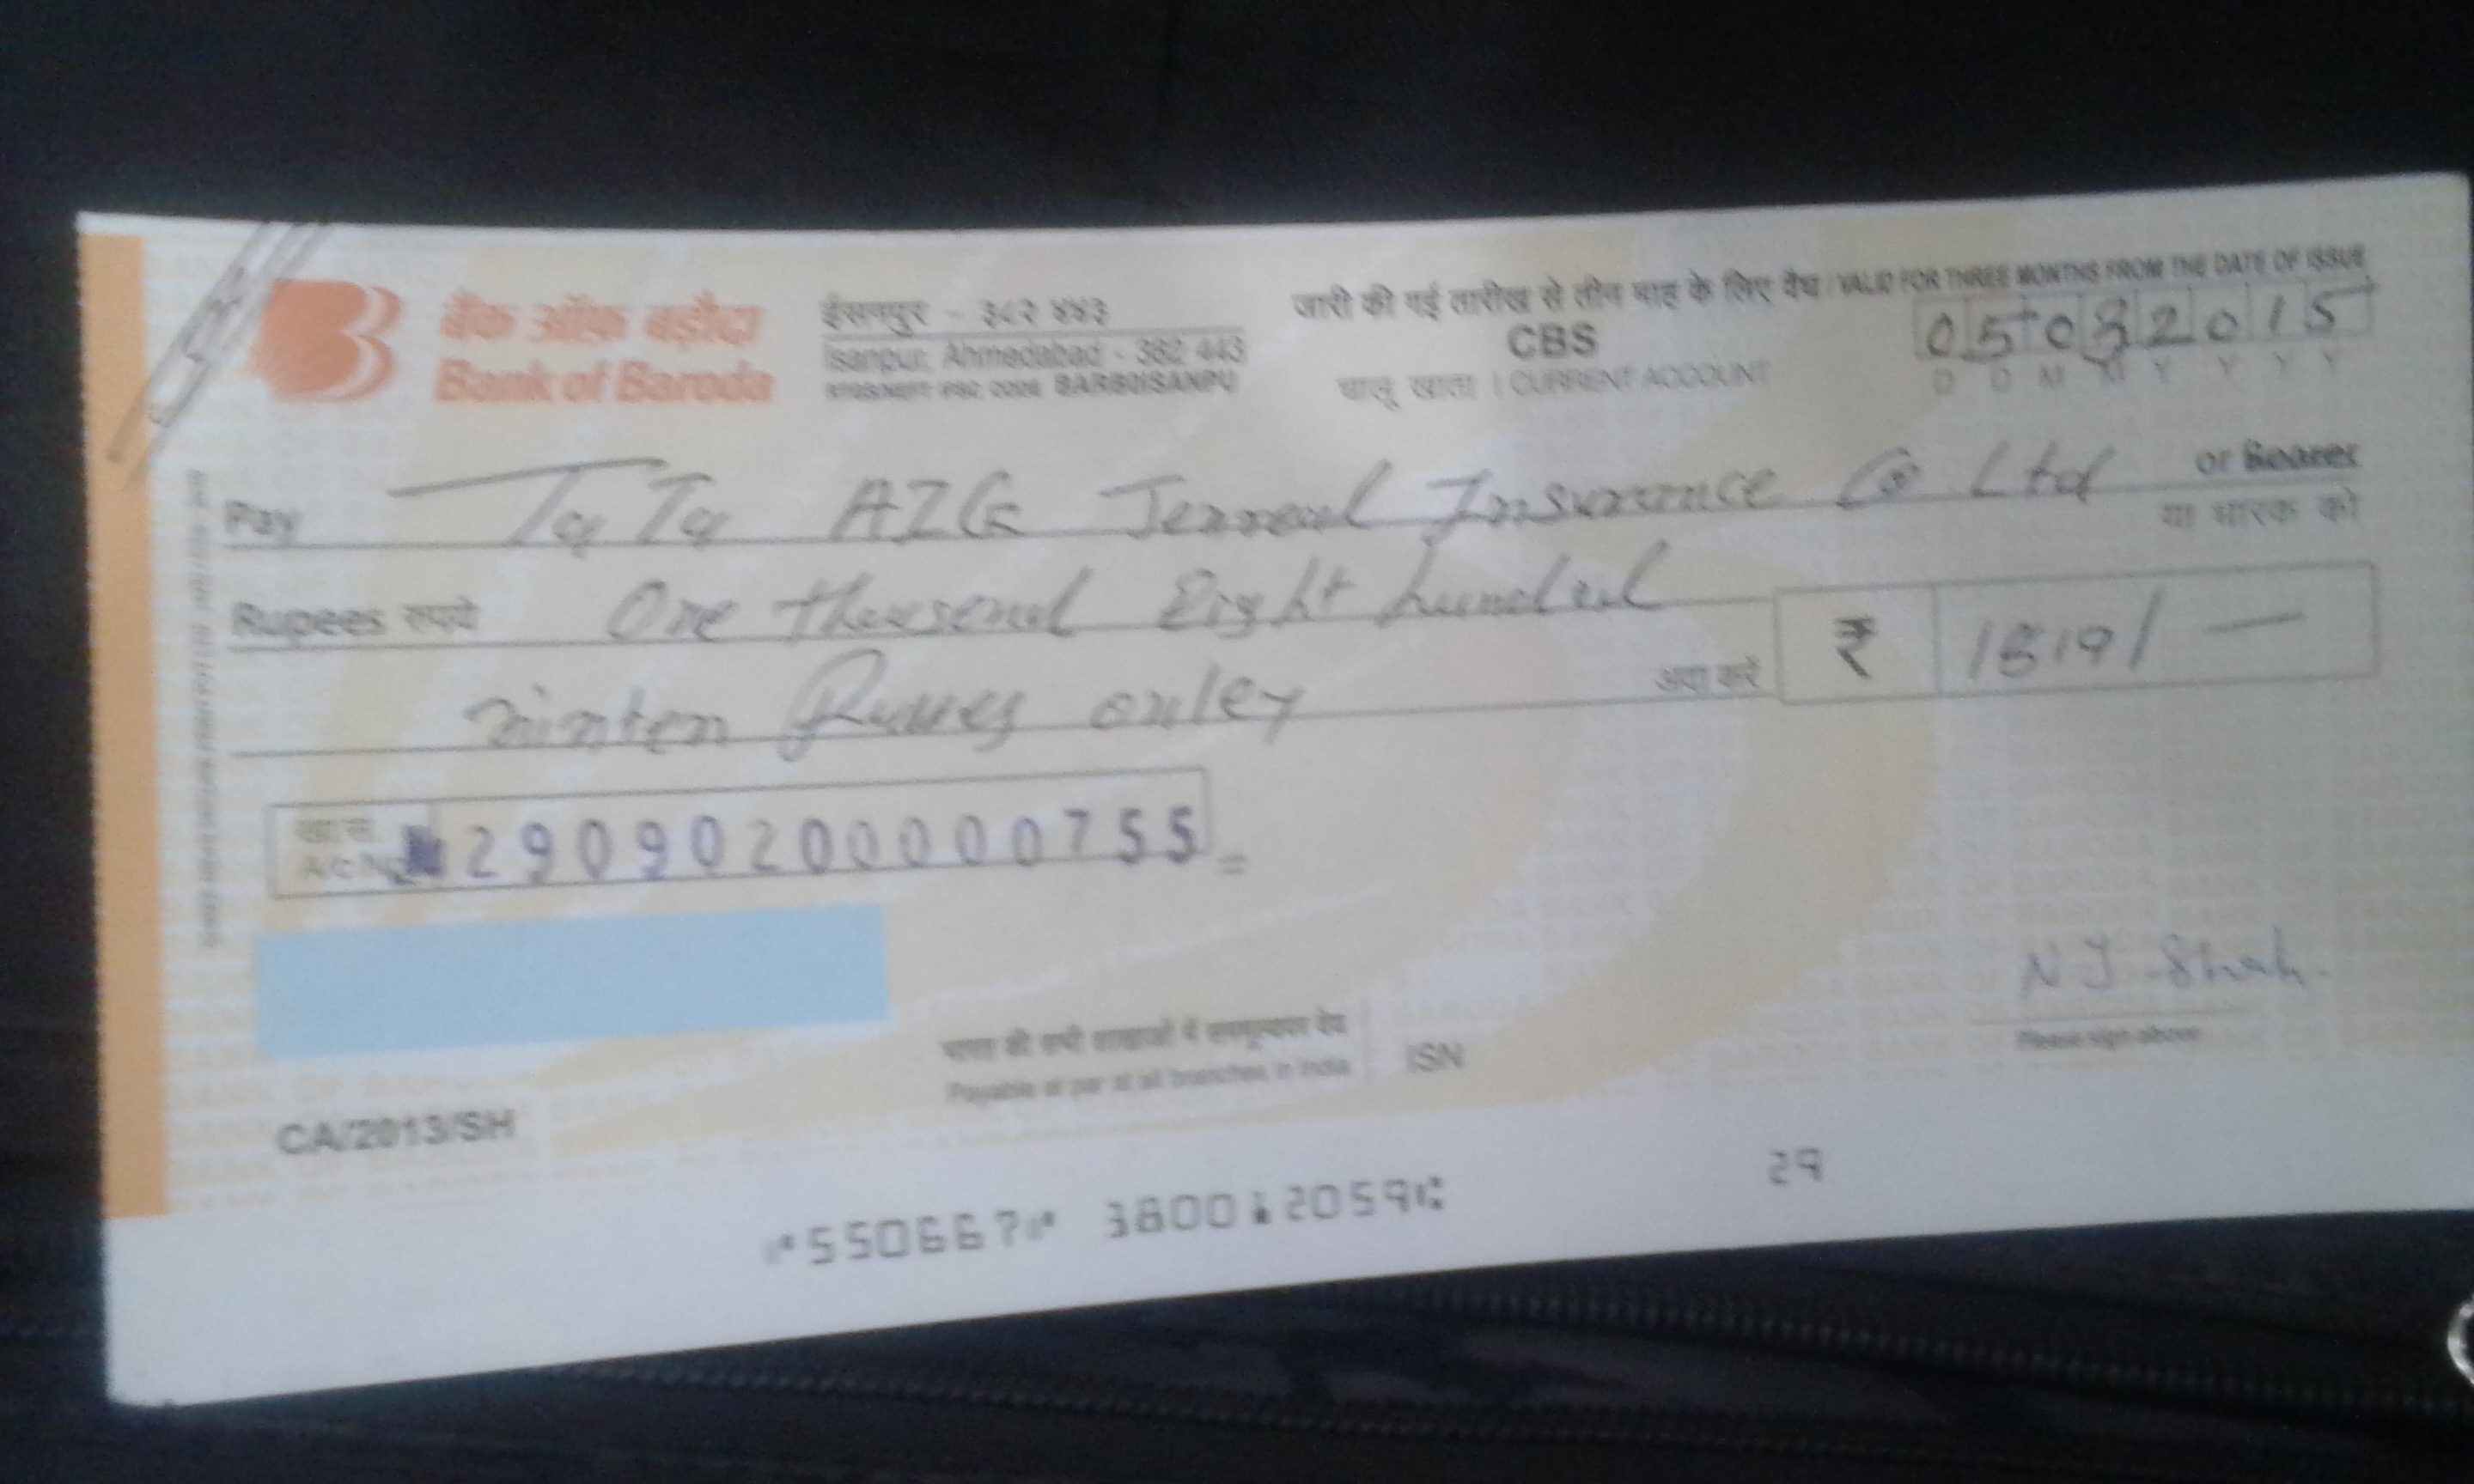 बैंक ऑफ़ बड़ौदा
Bank of Baroda
ईसनपुर - ३८२ ४४३
Isanpur, Ahmedabad - 382 443
RTGS/NEFT IFSC CODE BARB0ISANPU
जारी की गई तारीख से तीन माह के लिए वैध / VALID FOR THREE MONTHS FROM THE DATE OF ISSUE
CBS
चालू खाता / CURRENT ACCOUNT
05082015
D D M M Y Y Y Y
Pay TaTa AIG Jenreal Insurance Co Ltd or Bearer
या धारक को
Rupees रुपये One thousend Eight hundred
अदा करें
₹ 1819/-
ninten Rupees onley
खा.सं.
A/c No. 29090200000755
N J Shah.
Please sign above
भारत की सभी शाखाओं में सममूल्यपर देय
Payable at par at all branches in India
ISN
CA/2013/SH
550667 380012059 29